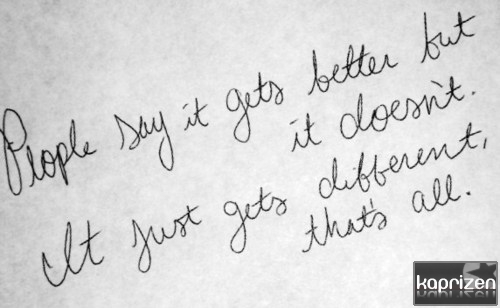 People say it gets better but
it doesn't.
It just gets different,
that's all.
kaprizen